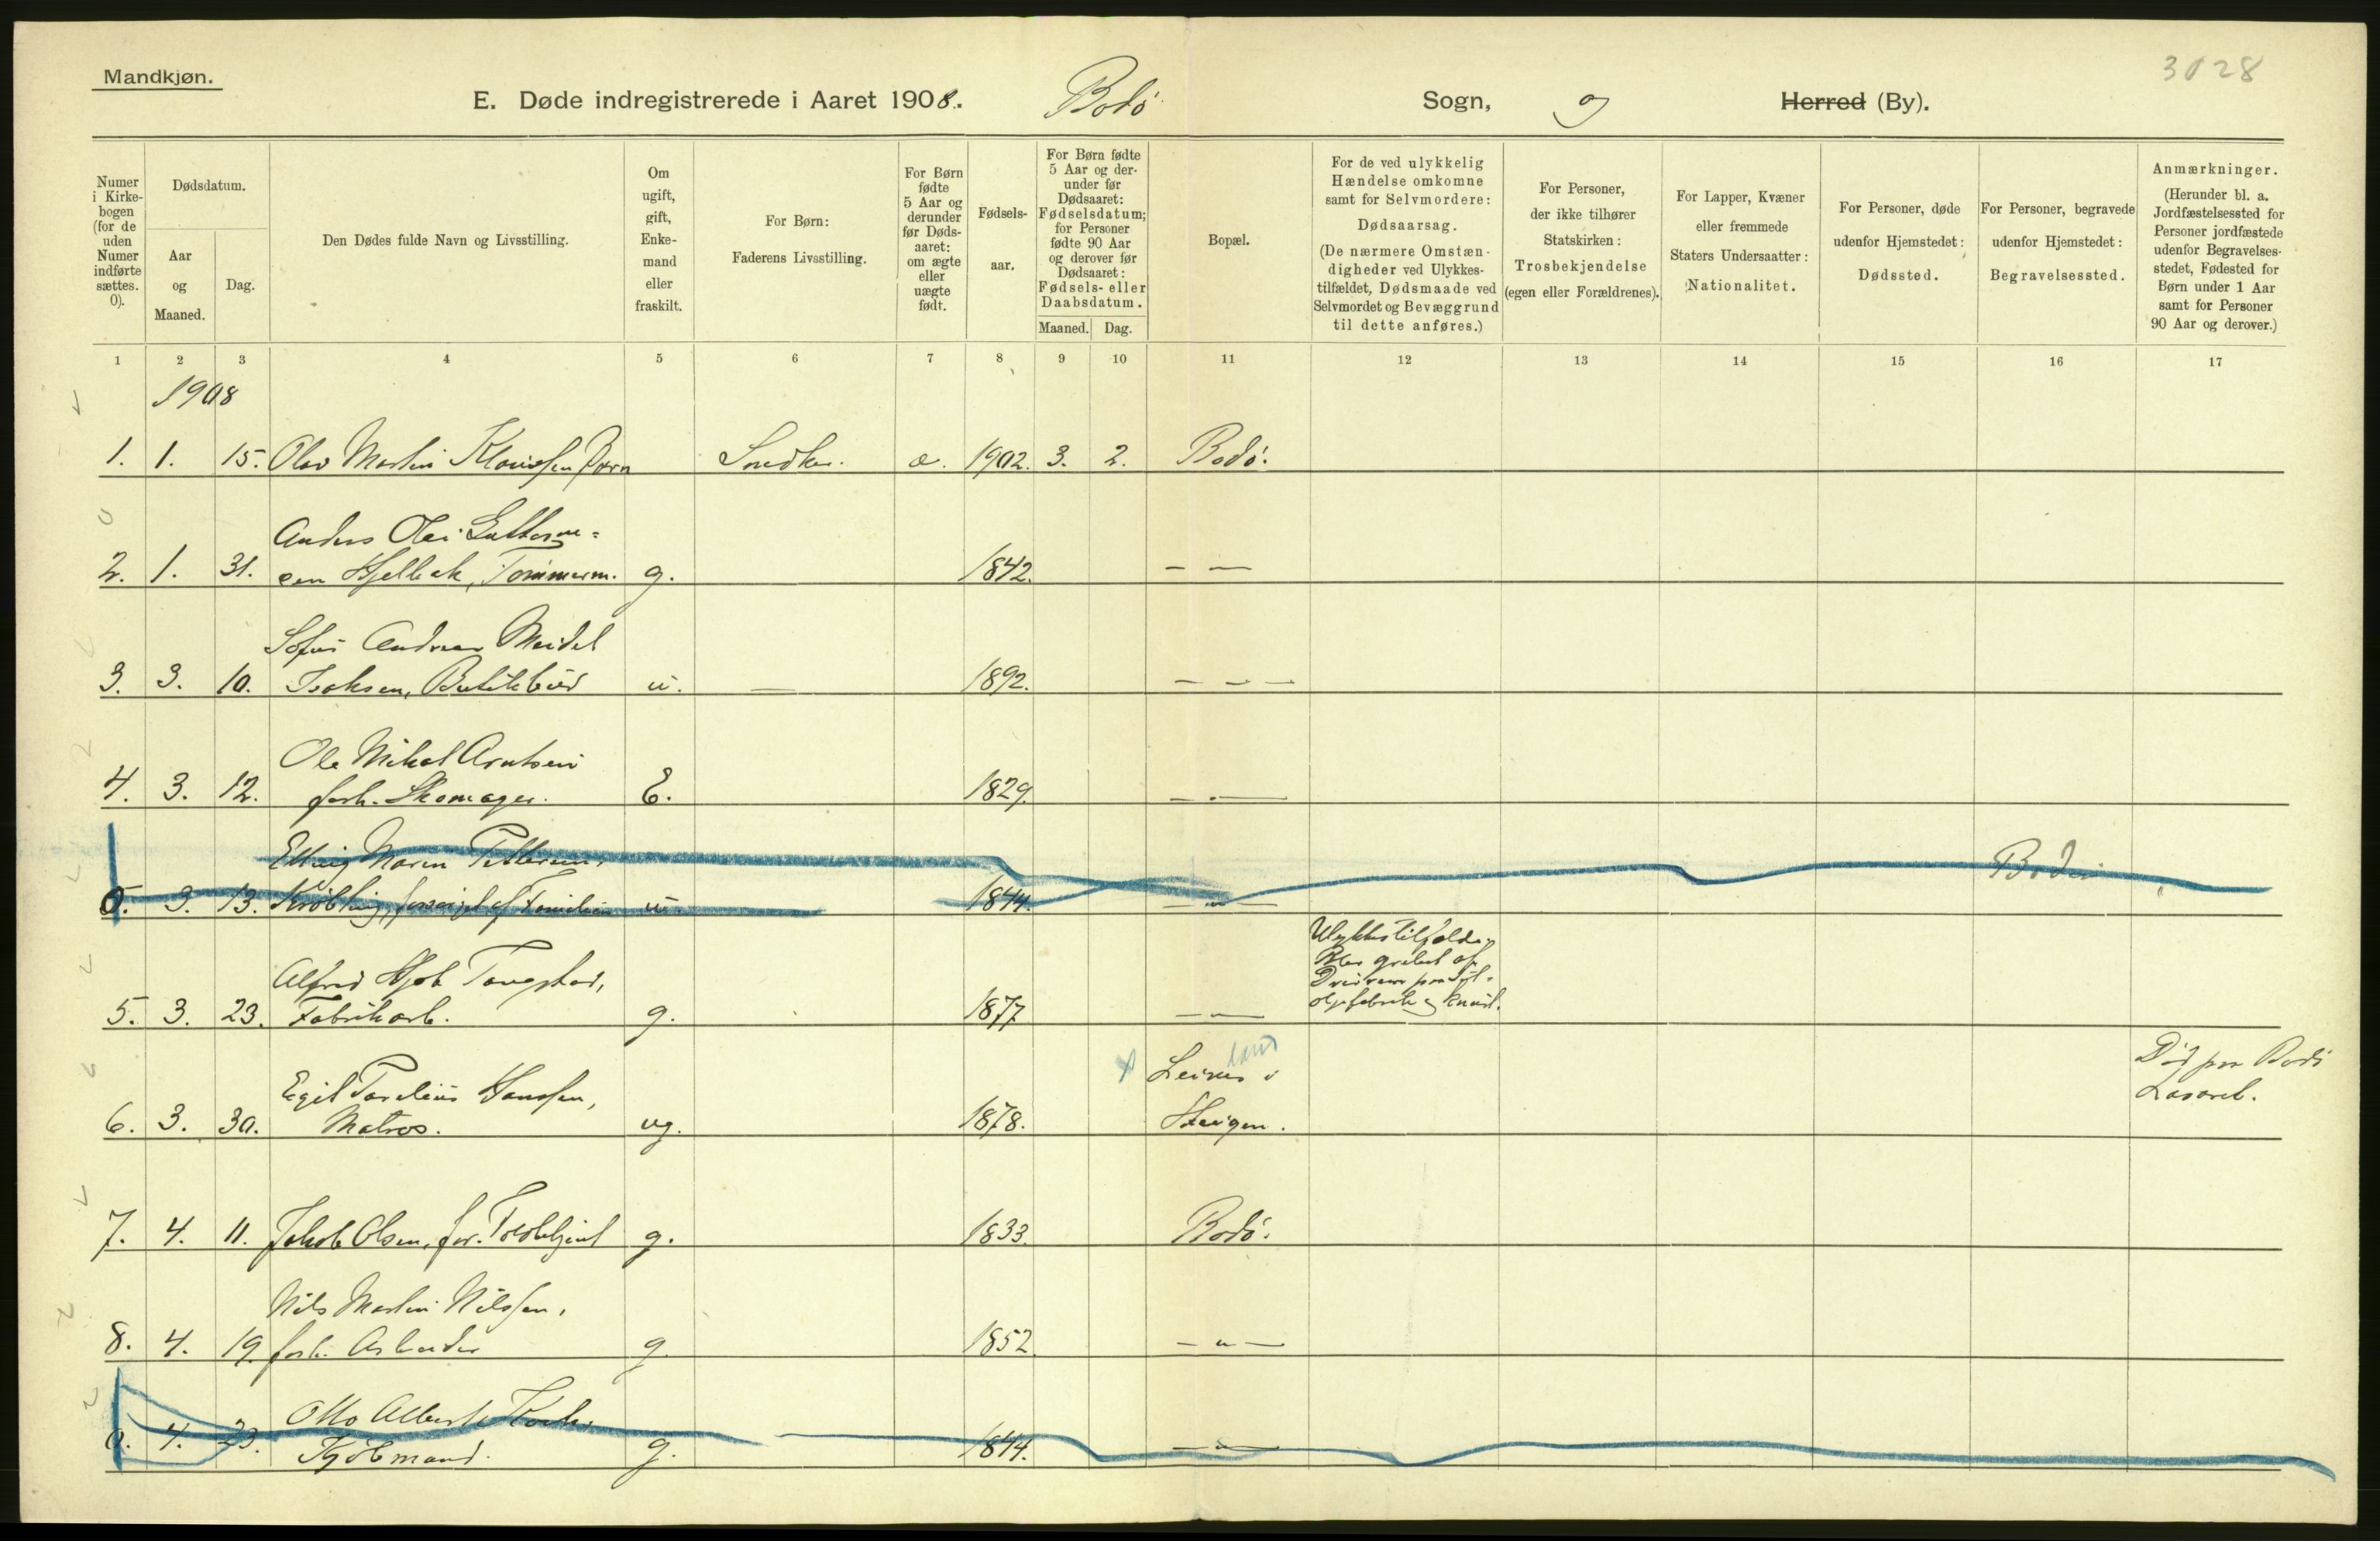 Mandkjøn.
3028
E. Døde indregistrerede i Aaret 1908. Bodø Sogn, og Herred (By).
Numer i Kirke-bogen (for de uden Numer indførte sættes. 0).
Dødsdatum.
Aar og Maaned.
Dag.
Den Dødes fulde Navn og Livsstilling.
Om ugift, gift, Enke-mand eller fraskilt.
For Børn:
Faderens Livsstilling.
For Børn fødte 5 Aar og derunder før Døds-aaret: om ægte eller uægte født.
Fødsels-aar.
For Børn fødte 5 Aar og der-under før Dødsaaret: Fødselsdatum; for Personer fødte 90 Aar og derover før Dødsaaret: Fødsels- eller Daabsdatum.
Maaned. Dag.
Bopæl.
For de ved ulykkelig Hændelse omkomne samt for Selvmordere:
Dødsaarsag.
(De nærmere Omstæn-digheder ved Ulykkes-tilfældet, Dødsmaade ved Selvmordet og Bevæggrund til dette anføres.)
For Personer, der ikke tilhører Statskirken:
Trosbekjendelse
(egen eller Forældrenes).
For Lapper, Kvæner eller fremmede Staters Undersaatter:
Nationalitet.
For Personer, døde udenfor Hjemstedet:
Dødssted.
For Personer, begravede udenfor Hjemstedet:
Begravelsessted.
Anmærkninger.
(Herunder bl. a. Jordfæstelsessted for Personer jordfæstede udenfor Begravelses-stedet, Fødested for Børn under 1 Aar samt for Personer 90 Aar og derover.)
1 2 3 4 5 6 7 8 9 10 11 12 13 14 15 16 17
1908
1. 1. 15. Olav Martin Klaussen Barn Snedker. æ. 1902. 3. 2. Bodø.
Anders Olai
2. 1. 31. sen Hjelbak, Tømmerm. g. 1842. — —
Sofus Andreas Meidel
3. 3. 10. Isaksen, Butikbud u. — 1892. — — —
Ole Mikal Arntsen
4. 3. 12. forh. Skomager. E. 1829. — . —
Maren Pettersen,
0. 3. 13. forsørget af Familien u. 1844. — " — Bodin
Alfred Hjort Tangstad,
5. 3. 23. Fabrikarb. g. 1877 — —
Ulykkestilfælde,
Blev grebet af
Drivrem paa Sild-
oljefabrik og knust.
Egil Hanssen,
6. 3. 30. Matros. ug. 1878. x Leines i
land
Steigen.
Død paa Bodø
Lasaret.
7. 4. 11. Jakob Olsen, for. g. 1833. Bodø.
Nils Martin Nilssen,
8. 4. 19. forh. Arbeider g. 1852. — " —
Otto Albert Koch,
0. 4. 23. Kjøbmand. g. 1844. — " —